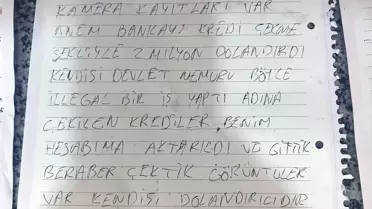 KAMERA KAYITLARI VAR
ANEM BANKAYI KREDİ ÇEKME
ŞEKLİYLE 2 MİLYON DOLANDIRDI
KENDİSİ DEVLET MEMURU BÖYLE
İLLEGAL BİR İŞ YAPTI ADINA
ÇEKİLEN KREDİLER, BENİM
HESABIMA AKTARILDI VE GİTTİK
BERABER ÇEKTİK GÖRÜNTÜLER
VAR KENDİSİ DOLANDIRICIDIR